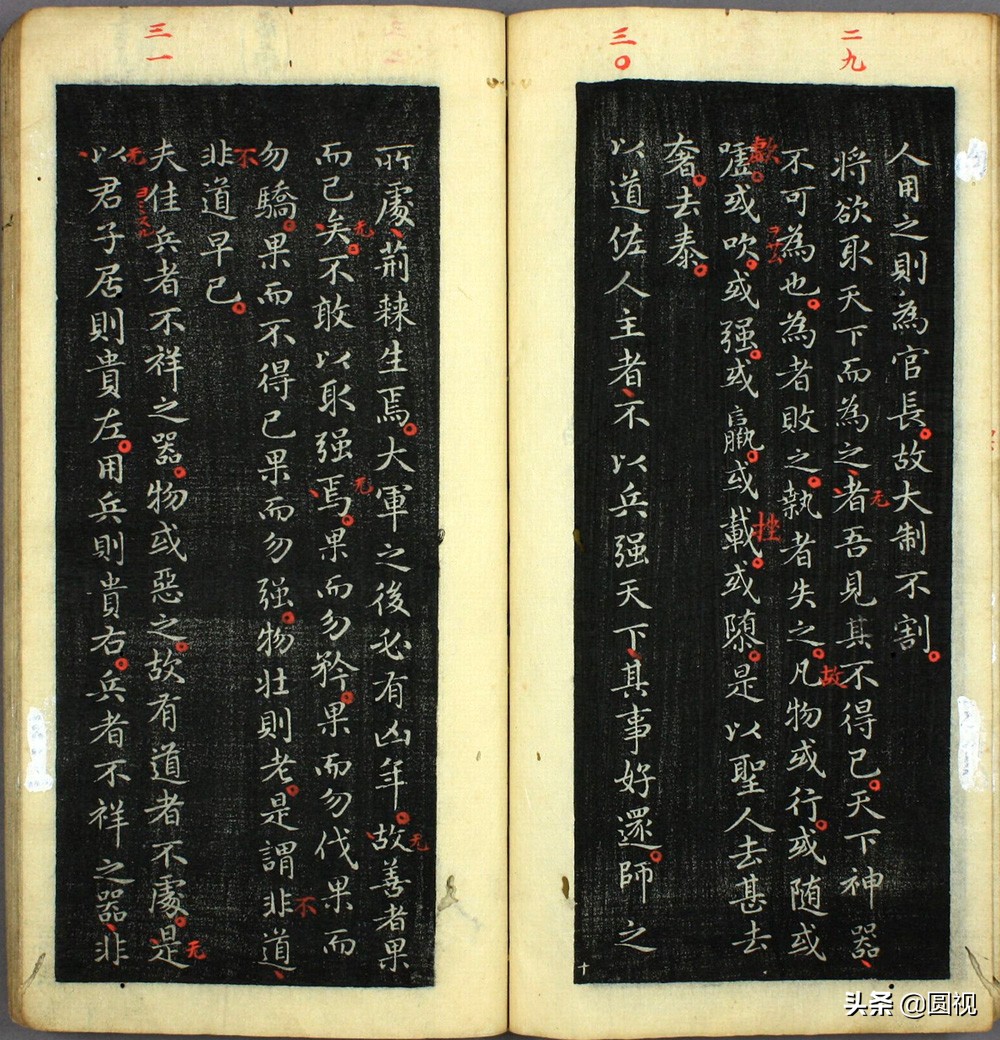 二九
人用之則為官長故大制不割
将欲取天下而為之者吾見其不得已天下神器
不可為也為者敗之執者失之凡物或行或随或
嘘或吹或强或羸或載或隳是以聖人去甚去
奢去泰
三〇
以道佐人主者不以兵强天下其事好還師之
所處荊棘生焉大軍之後必有凶年故善者果
而已矣不敢以取强焉果而勿矜果而勿伐果而
勿驕果而不得已果而勿强物壯則老是謂非道
非道早已
三一
夫佳兵者不祥之器物或惡之故有道者不處是
以君子居則貴左用兵則貴右兵者不祥之器非
无
故
歙
挫
无
无
无
不
不
无
无
十
头条 @圆视